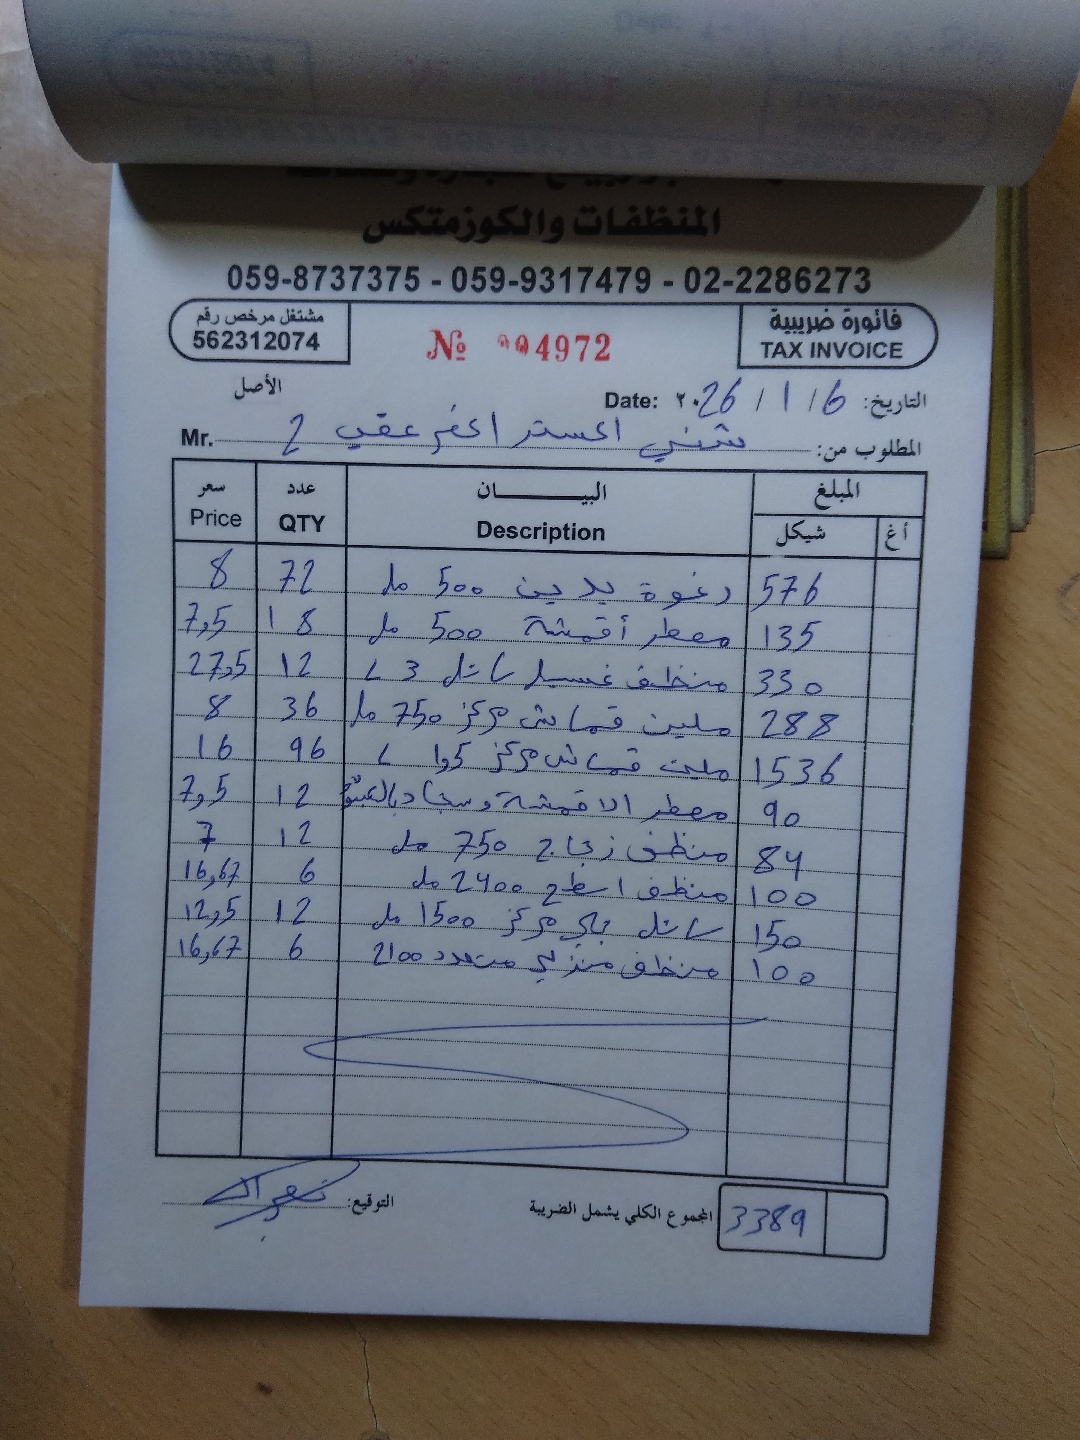 المنظفات والكوزمتكس
059-8737375 - 059-9317479 - 02-2286273
فاتورة ضريبية
TAX INVOICE
№ 004972
مشتغل مرخص رقم
562312074
الأصل
التاريخ: 6 / 1 / ٢٠26 Date:
المطلوب من: اكسترا كفر عقب 2 Mr.
المبلغ البيــــــان عدد سعر
أغ شيكل Description QTY Price
576 رغوة يدين 500 مل 72 8
135 معطر أقمشة 500 مل 18 7,5
330 منظف غسيل سائل 3 ل 12 27,5
288 ملين قماش مركز 750 مل 36 8
1536 ملين قماش مركز 1,5 ل 96 16
90 معطر الاقمشة وسجاد 12 7,5
84 منظف زجاج 750 مل 12 7
100 منظف اسطح 2400 مل 6 16,67
150 سائل جلي مركز 1500 مل 12 12,5
100 منظف منزلي متعدد 2100 6 16,67
3389 المجموع الكلي يشمل الضريبة
التوقيع: